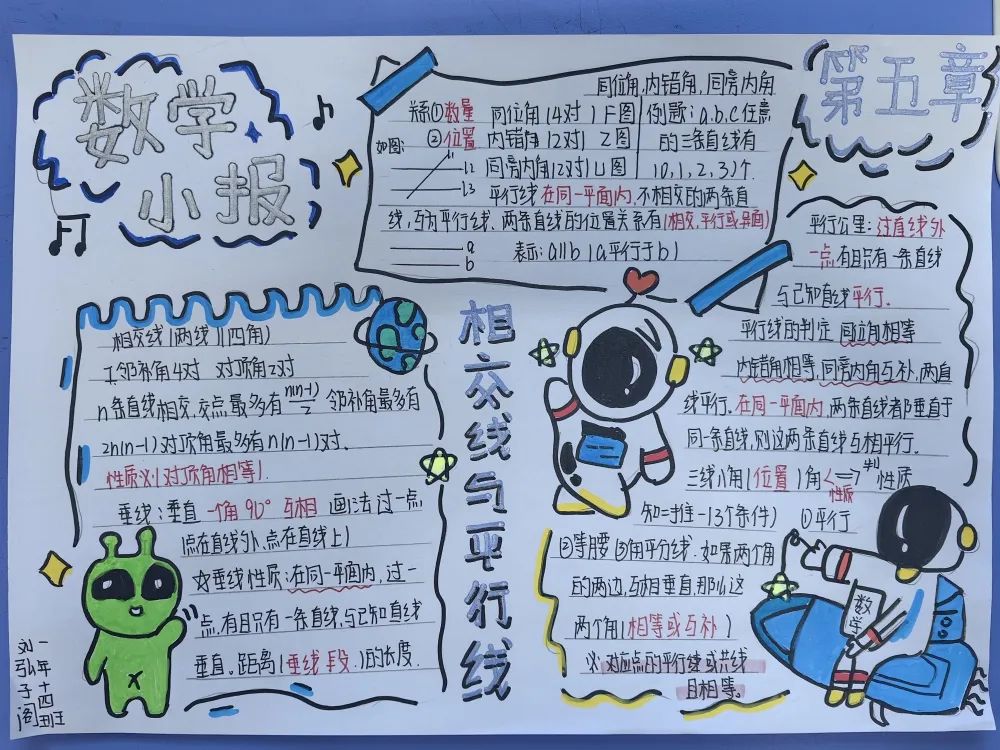 数学
小报
第五章
同位角,内错角,同旁内角
关系①数量 同位角(4对)F图
②位置 内错角(2对)Z图
如图:
l2 同旁内角(2对)U图
l3
例题:a.b.c任意
的三条直线有
(0,1,2,3)个.
平行线 在同一平面内,不相交的两条直
线,互为平行线、两条直线的位置关系有(相交,平行或异面)
a
b
表示:a∥b(a平行于b)
平行公里:过直线外
一点,有且只有一条直线
与已知直线平行.
平行线的判定 同位角相等
内错角相等,同旁内角互补,两直
线平行.在同一平面内,两条直线都垂直于
同一条直线,则这两条直线互相平行.
三线八角(位置)角 判 性质
性质
知二推一(3个条件) ①平行
②等腰 ③角平分线.如果两个角
的两边,互相垂直,那么这
两个角(相等或互补)
必:对应点的平行线或共线
且相等。
相交线与平行线
相交线(两线)(四角)
I.邻补角4对 对顶角2对
n条直线相交,交点最多有n(n-1)/2 邻补角最多有
2n(n-1)对顶角最多有n(n-1)对.
性质必(对顶角相等).
垂线:垂直 一个角90° 互相 画法过一点
(点在直线外、点在直线上)
☆垂线性质:在同一平面内,过一
点,有且只有一条直线,与已知直线
垂直。距离(垂线段.)的长度.
数学
一年十四班
刘弘子阁